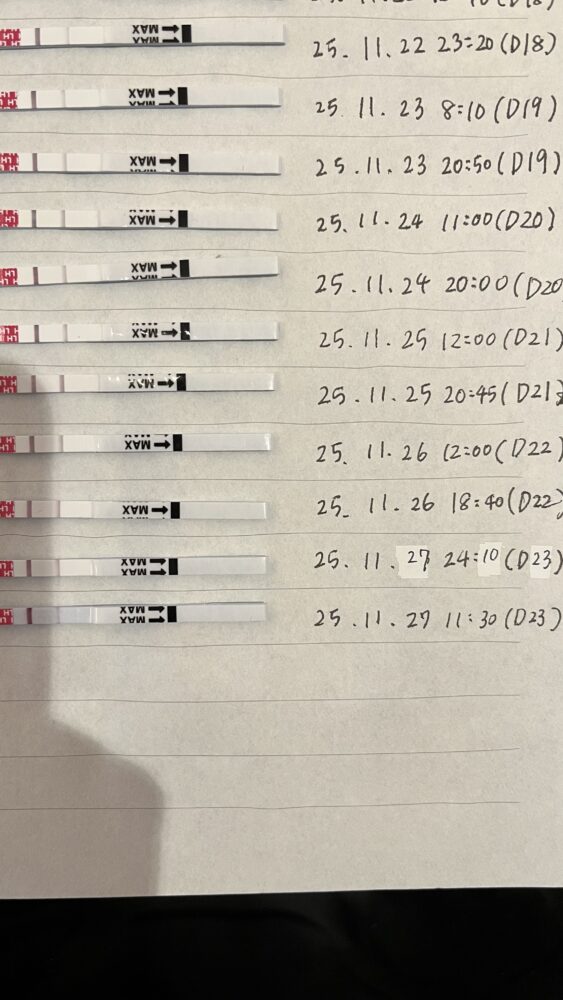 (D18)
LH MAX 25. 11. 22 23:20 (D18)
LH MAX 25. 11. 23 8:10 (D19)
LH MAX 25. 11. 23 20:50 (D19)
LH MAX 25. 11. 24 11:00 (D20)
LH MAX 25. 11. 24 20:00 (D20
LH MAX 25. 11. 25 12:00 (D21)
LH MAX 25. 11. 25 20:45 (D21)
LH MAX 25. 11. 26 12:00 (D22)
LH MAX 25. 11. 26 18:40 (D22)
LH MAX 25. 11. 27 24:10 (D23)
LH MAX 25. 11. 27 11:30 (D23)